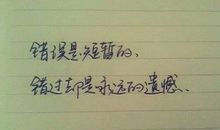 错误是短暂的、
错过却是永远的遗憾、